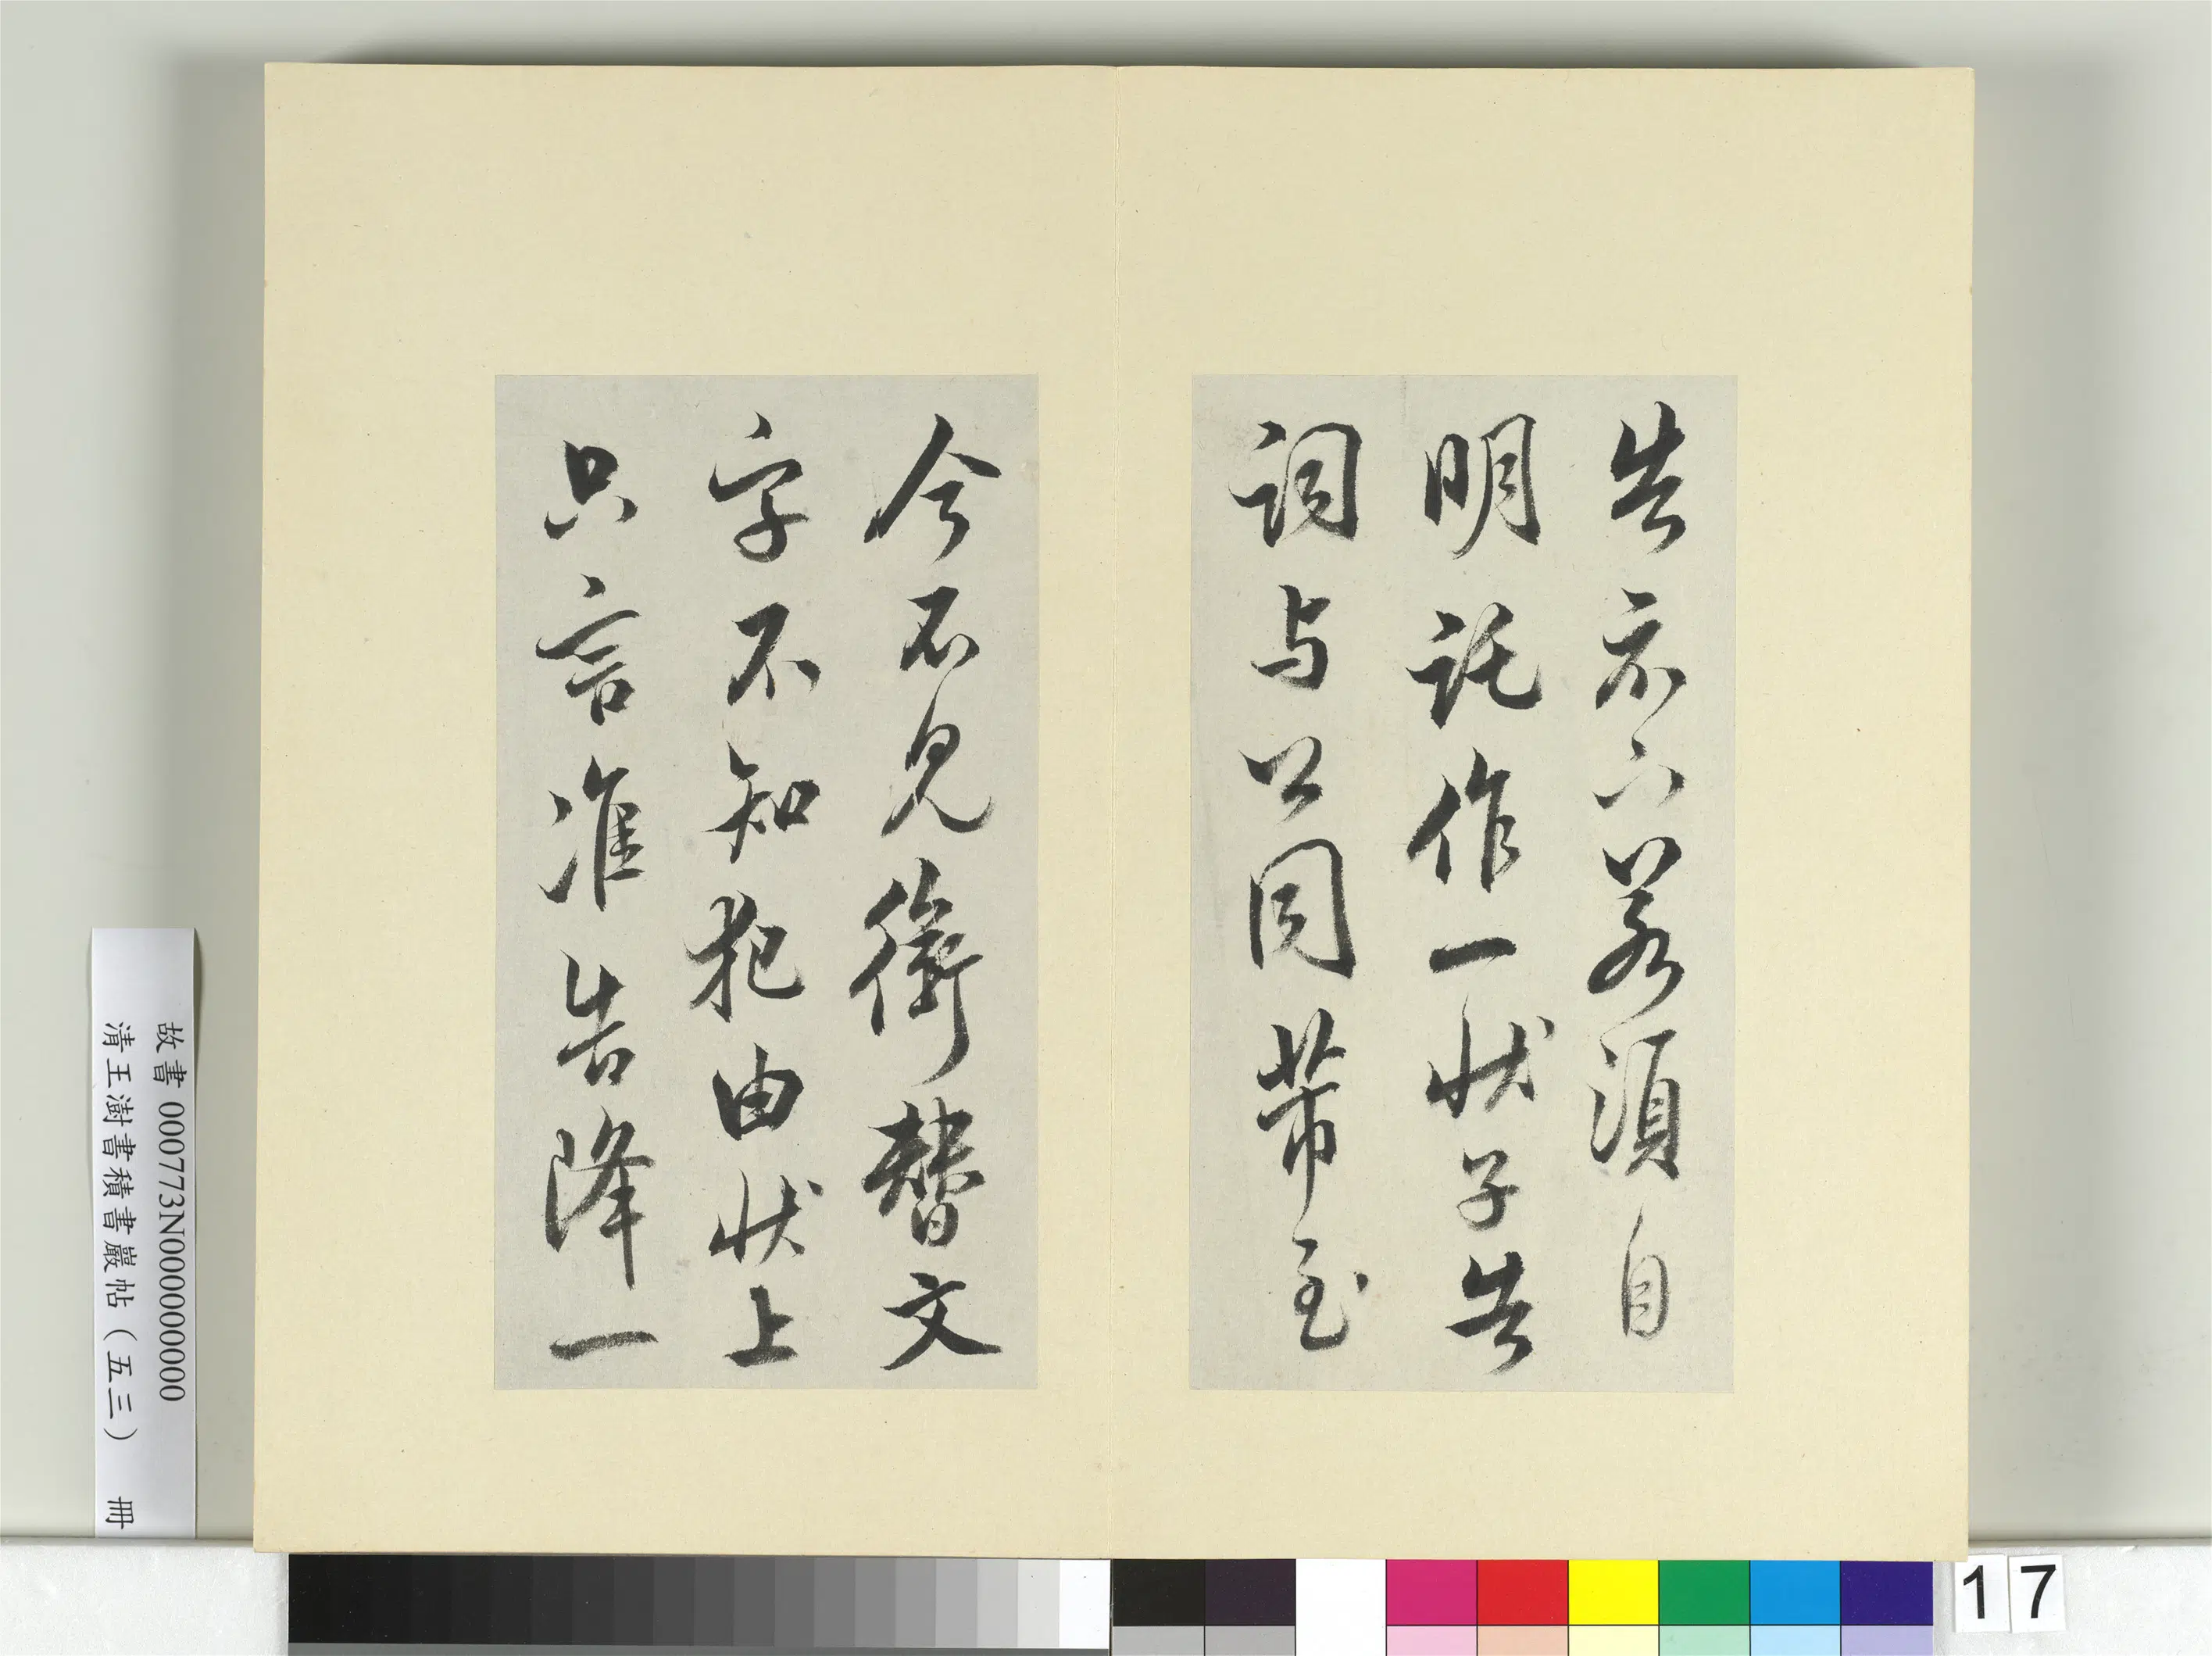 告示下若須自
明託作一状子告
詞与公同带至
今不見銜替文
字不知犯由状上
只言准告降一
故書 000773N000000000
清王澍書積書巖帖（五三） 冊
17